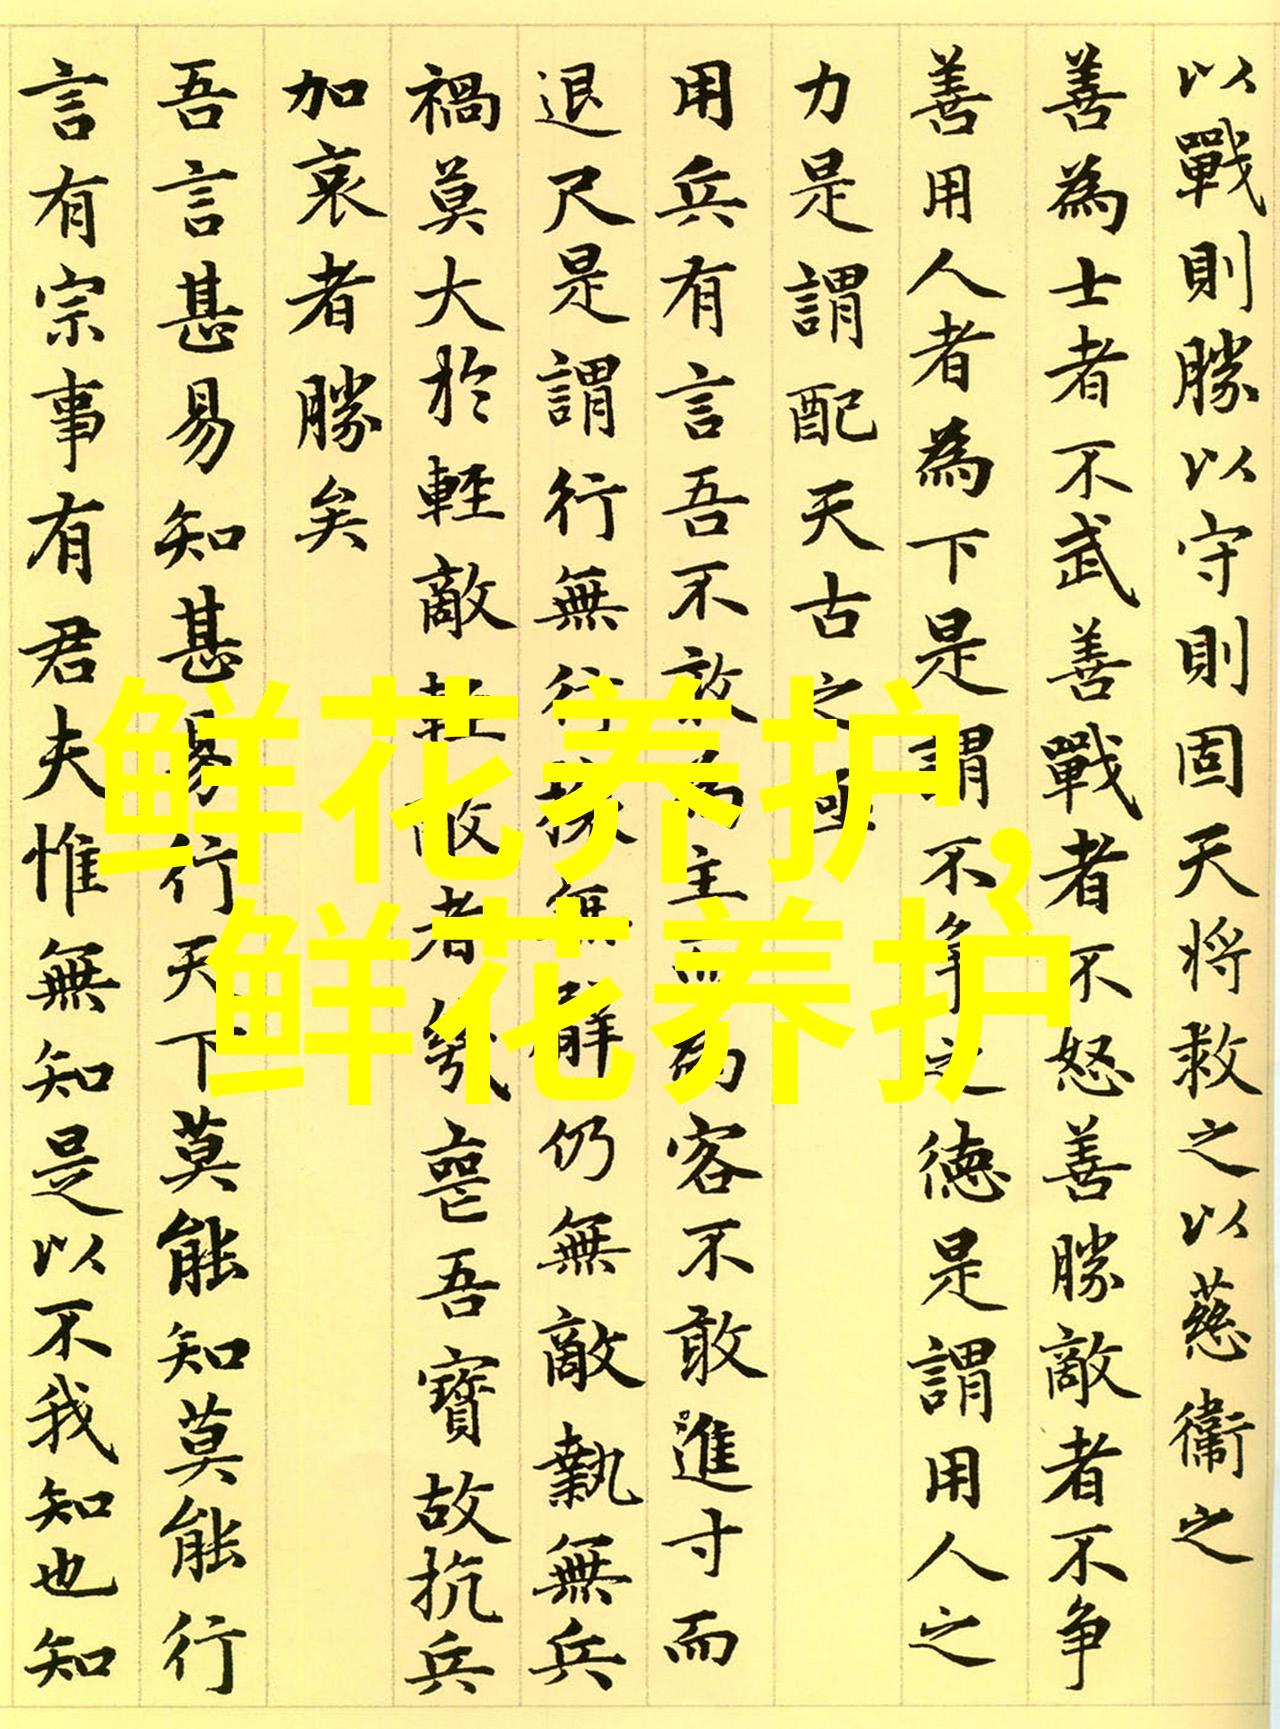 以戰則勝以守則固天将救之以慈衞之
善為士者不武善戰者不怒善勝敵者不争
善用人者為下是謂不争之德是謂用人之
力是謂配天古之極
用兵有言吾不敢為主而為客不敢進寸而
退尺是謂行無行攘無臂仍無敵執無兵
禍莫大於輕敵輕敵者幾喪吾寶故抗兵
加哀者勝矣
吾言甚易知甚易行天下莫能知莫能行
言有宗事有君夫惟無知是以不我知也知
鲜花养护,
鲜花养护